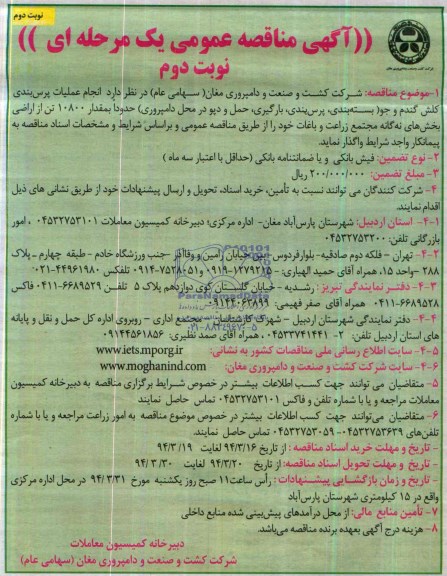 نوبت دوم
((آگهی مناقصه عمومی یک مرحله ای ))
نوبت دوم
۱-موضوع مناقصه: شرکت کشت و صنعت و دامپروری مغان( سهامی عام) در نظر دارد انجام عملیات پرس‌بندی
کلش گندم و جو( بسته‌بندی، پرس‌بندی، بارگیری، حمل و دپو در محل دامپروری) حدوداً بمقدار ۱۰۸۰۰ تن از اراضی
بخش‌های نه‌گانه مجتمع زراعت و باغات خود را از طریق مناقصه عمومی و براساس شرایط و مشخصات اسناد مناقصه به
پیمانکار واجد شرایط واگذار نماید.
۲- نوع تضمین: فیش بانکی و یا ضمانتنامه بانکی (حداقل با اعتبار سه ماه )
۳- مبلغ تضمین: ۲۰۰/۰۰۰/۰۰۰ ریال
۴- شرکت کنندگان می توانند نسبت به تأمین، خرید اسناد، تحویل و ارسال پیشنهادات خود از طریق نشانی های ذیل
اقدام نمایند.
۴-۱- استان اردبیل: شهرستان پارس‌آباد مغان- اداره مرکزی؛ دبیرخانه کمیسیون معاملات ۰۴۵۳۲۷۵۳۱۰۱ ، امور
بازرگانی تلفن: ۰۴۵۳۲۷۵۳۲۰۰
۴-۲- تهران - فلکه دوم صادقیه- بلوارفردوس -بین خیابان رامین و وفاآذر -جنب ورزشگاه خادم - طبقه چهارم - پلاک
۲۸۸ -واحد ۱۵، همراه آقای حمید الهیاری- ۰۹۱۹۰۱۷۷۹۲۱۵ و ۰۹۱۴۰۷۵۲۸۰۵۱ تلفکس ۴۴۹۶۱۹۸۰-۰۲۱
۴-۳- دفتر نمایندگی تبریز : رشدیه - خیابان گلستان کوی دوازدهم پلاک ۵ تلفن ۶۶۸۹۵۲۹-۰۴۱۱ فاکس
۶۶۸۹۵۲۸-۰۴۱۱ همراه آقای صفر فهیمی:
۴-۴- دفتر نمایندگی شهرستان اردبیل - شهرک کارشناسان - مجتمع اداری - روبروی اداره کل حمل و نقل و پایانه
های استان اردبیل تلفن: ۲ -۰۴۵۳۳۷۴۱۴۴۱ ، همراه آقای صمد نظیری: ۰۹۱۴۴۵۶۱۸۵۶
۴-۵- سایت اطلاع رسانی ملی مناقصات کشور به نشانی: www.iets.mporg.ir
۴-۶- سایت شرکت کشت و صنعت و دامپروری مغان: www.moghanind.com
۵- متقاضیان می توانند جهت کسب اطلاعات بیشتر در خصوص شرایط برگزاری مناقصه به دبیرخانه کمیسیون
معاملات مراجعه و یا با شماره تلفن و فاکس ۰۴۵۳۲۷۵۳۱۰۱ تماس حاصل نمایند
۶- متقاضیان می‌توانند جهت کسب اطلاعات بیشتر در خصوص موضوع مناقصه به امور زراعت مراجعه و یا با شماره
تلفن‌های ۰۴۵۳۲۷۵۳۶۳۹- ۰۴۵۳۲۷۵۳۰۵۹ تماس حاصل نمایند.
- تاریخ و مهلت خرید اسناد مناقصه : از تاریخ ۹۴/۳/۱۶ لغایت ۹۴/۳/۱۹
- تاریخ و مهلت تحویل اسناد مناقصه: از تاریخ ۹۴/۳/۲۰ لغایت ۹۴/۳/۳۰
- تاریخ و زمان بازگشایی پیشنهادات : رأس ساعت۱۱ صبح روز یکشنبه مورخ ۹۴/۳/۳۱ در محل اداره مرکزی
واقع در ۱۵ کیلومتری شهرستان پارس‌آباد
۷- تأمین منابع مالی: از محل درآمدهای پیش‌بینی شده منابع داخلی
۸- هزینه درج آگهی بعهده برنده مناقصه می‌باشد.
دبیرخانه کمیسیون معاملات
شرکت کشت و صنعت و دامپروری مغان (سهامی عام)